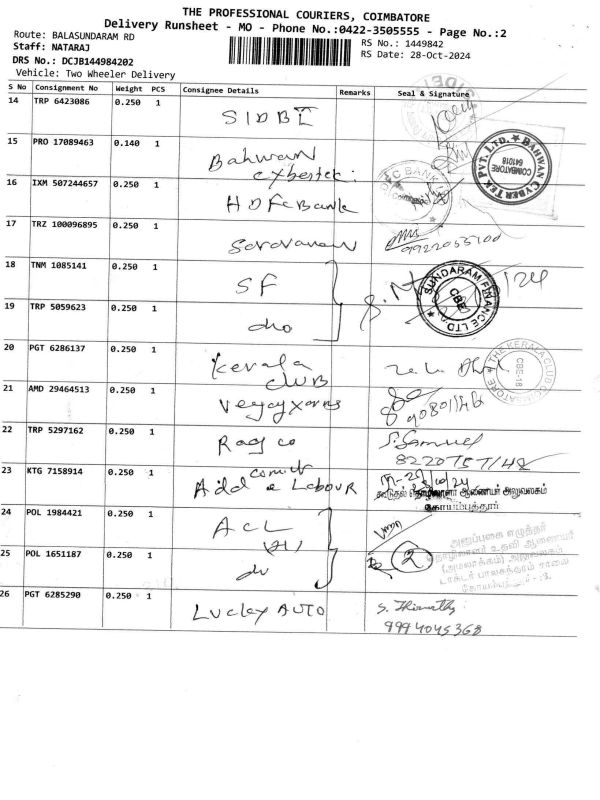 THE PROFESSIONAL COURIERS, COIMBATORE
Delivery Runsheet - MO - Phone No.:0422-3505555 - Page No.:2
Route: BALASUNDARAM RD
Staff: NATARAJ
RS No.: 1449842
DRS No.: DCJB144984202
RS Date: 28-Oct-2024
Vehicle: Two Wheeler Delivery
S No Consignment No Weight PCS Consignee Details Remarks Seal & Signature
14 TRP 6423086 0.250 1 SIDBI
15 PRO 17089463 0.140 1 Bahwan
cybertek
BAHWAN CYBERTEK PVT. LTD. COIMBATORE 641018
16 IXM 507244657 0.250 1 HDFC Bank
17 TRZ 100096895 0.250 1 Saravanan
18 TNM 1085141 0.250 1 SF
SUNDARAM FINANCE LTD CBE
19 TRP 5059623 0.250 1 do
20 PGT 6286137 0.250 1 Kerala
CLUB
THE KERALA CLUB COIMBATORE CBE-18
21 AMD 29464513 0.250 1
22 TRP 5297162 0.250 1 Rag co S. Samuel
23 KTG 7158914 0.250 1 Add Labour
கூடுதல் தொழிலாளர் ஆணையர் அலுவலகம்
கோயம்புத்தூர்
24 POL 1984421 0.250 1 ACL
25 POL 1651187 0.250 1 do 2
அனுப்புகை எழுத்தர்
தொழிலாளர் உதவி ஆணையர்
(அமலாக்கம்) அலுவலகம்
டாக்டர் பாலசுந்தரம் சாலை
26 PGT 6285290 0.250 1 Lucky AUTO
9994045368